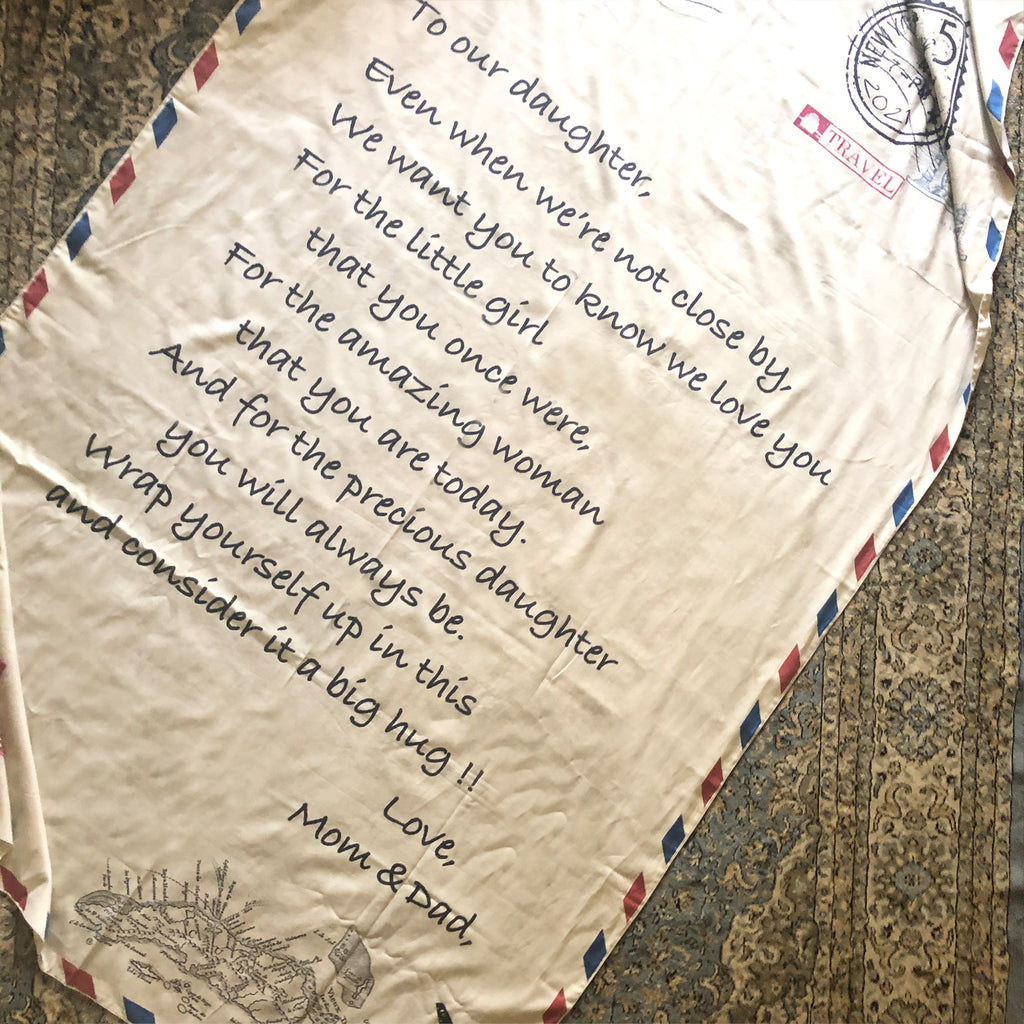 To our daughter,
Even when we're not close by,
We want you to know we love you
For the little girl
that you once were,
For the amazing woman
that you are today.
And for the precious daughter
you will always be.
Wrap yourself up in this
and consider it a big hug !!
Love,
Mom & Dad,
NEW YO
5
2021
TRAVEL